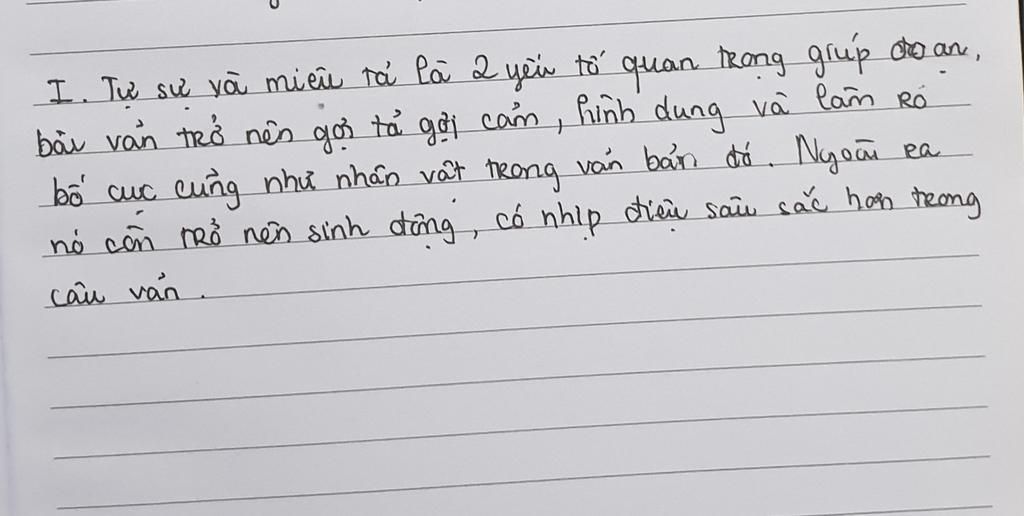 I. Tự sự và miêu tả là 2 yếu tố quan trọng giúp đoạn,
bài văn trở nên gợi tả gợi cảm, hình dung và làm rõ
bố cục cũng như nhân vật trong văn bản đó. Ngoài ra
nó còn trở nên sinh động, có nhịp điệu sâu sắc hơn trong
câu văn.